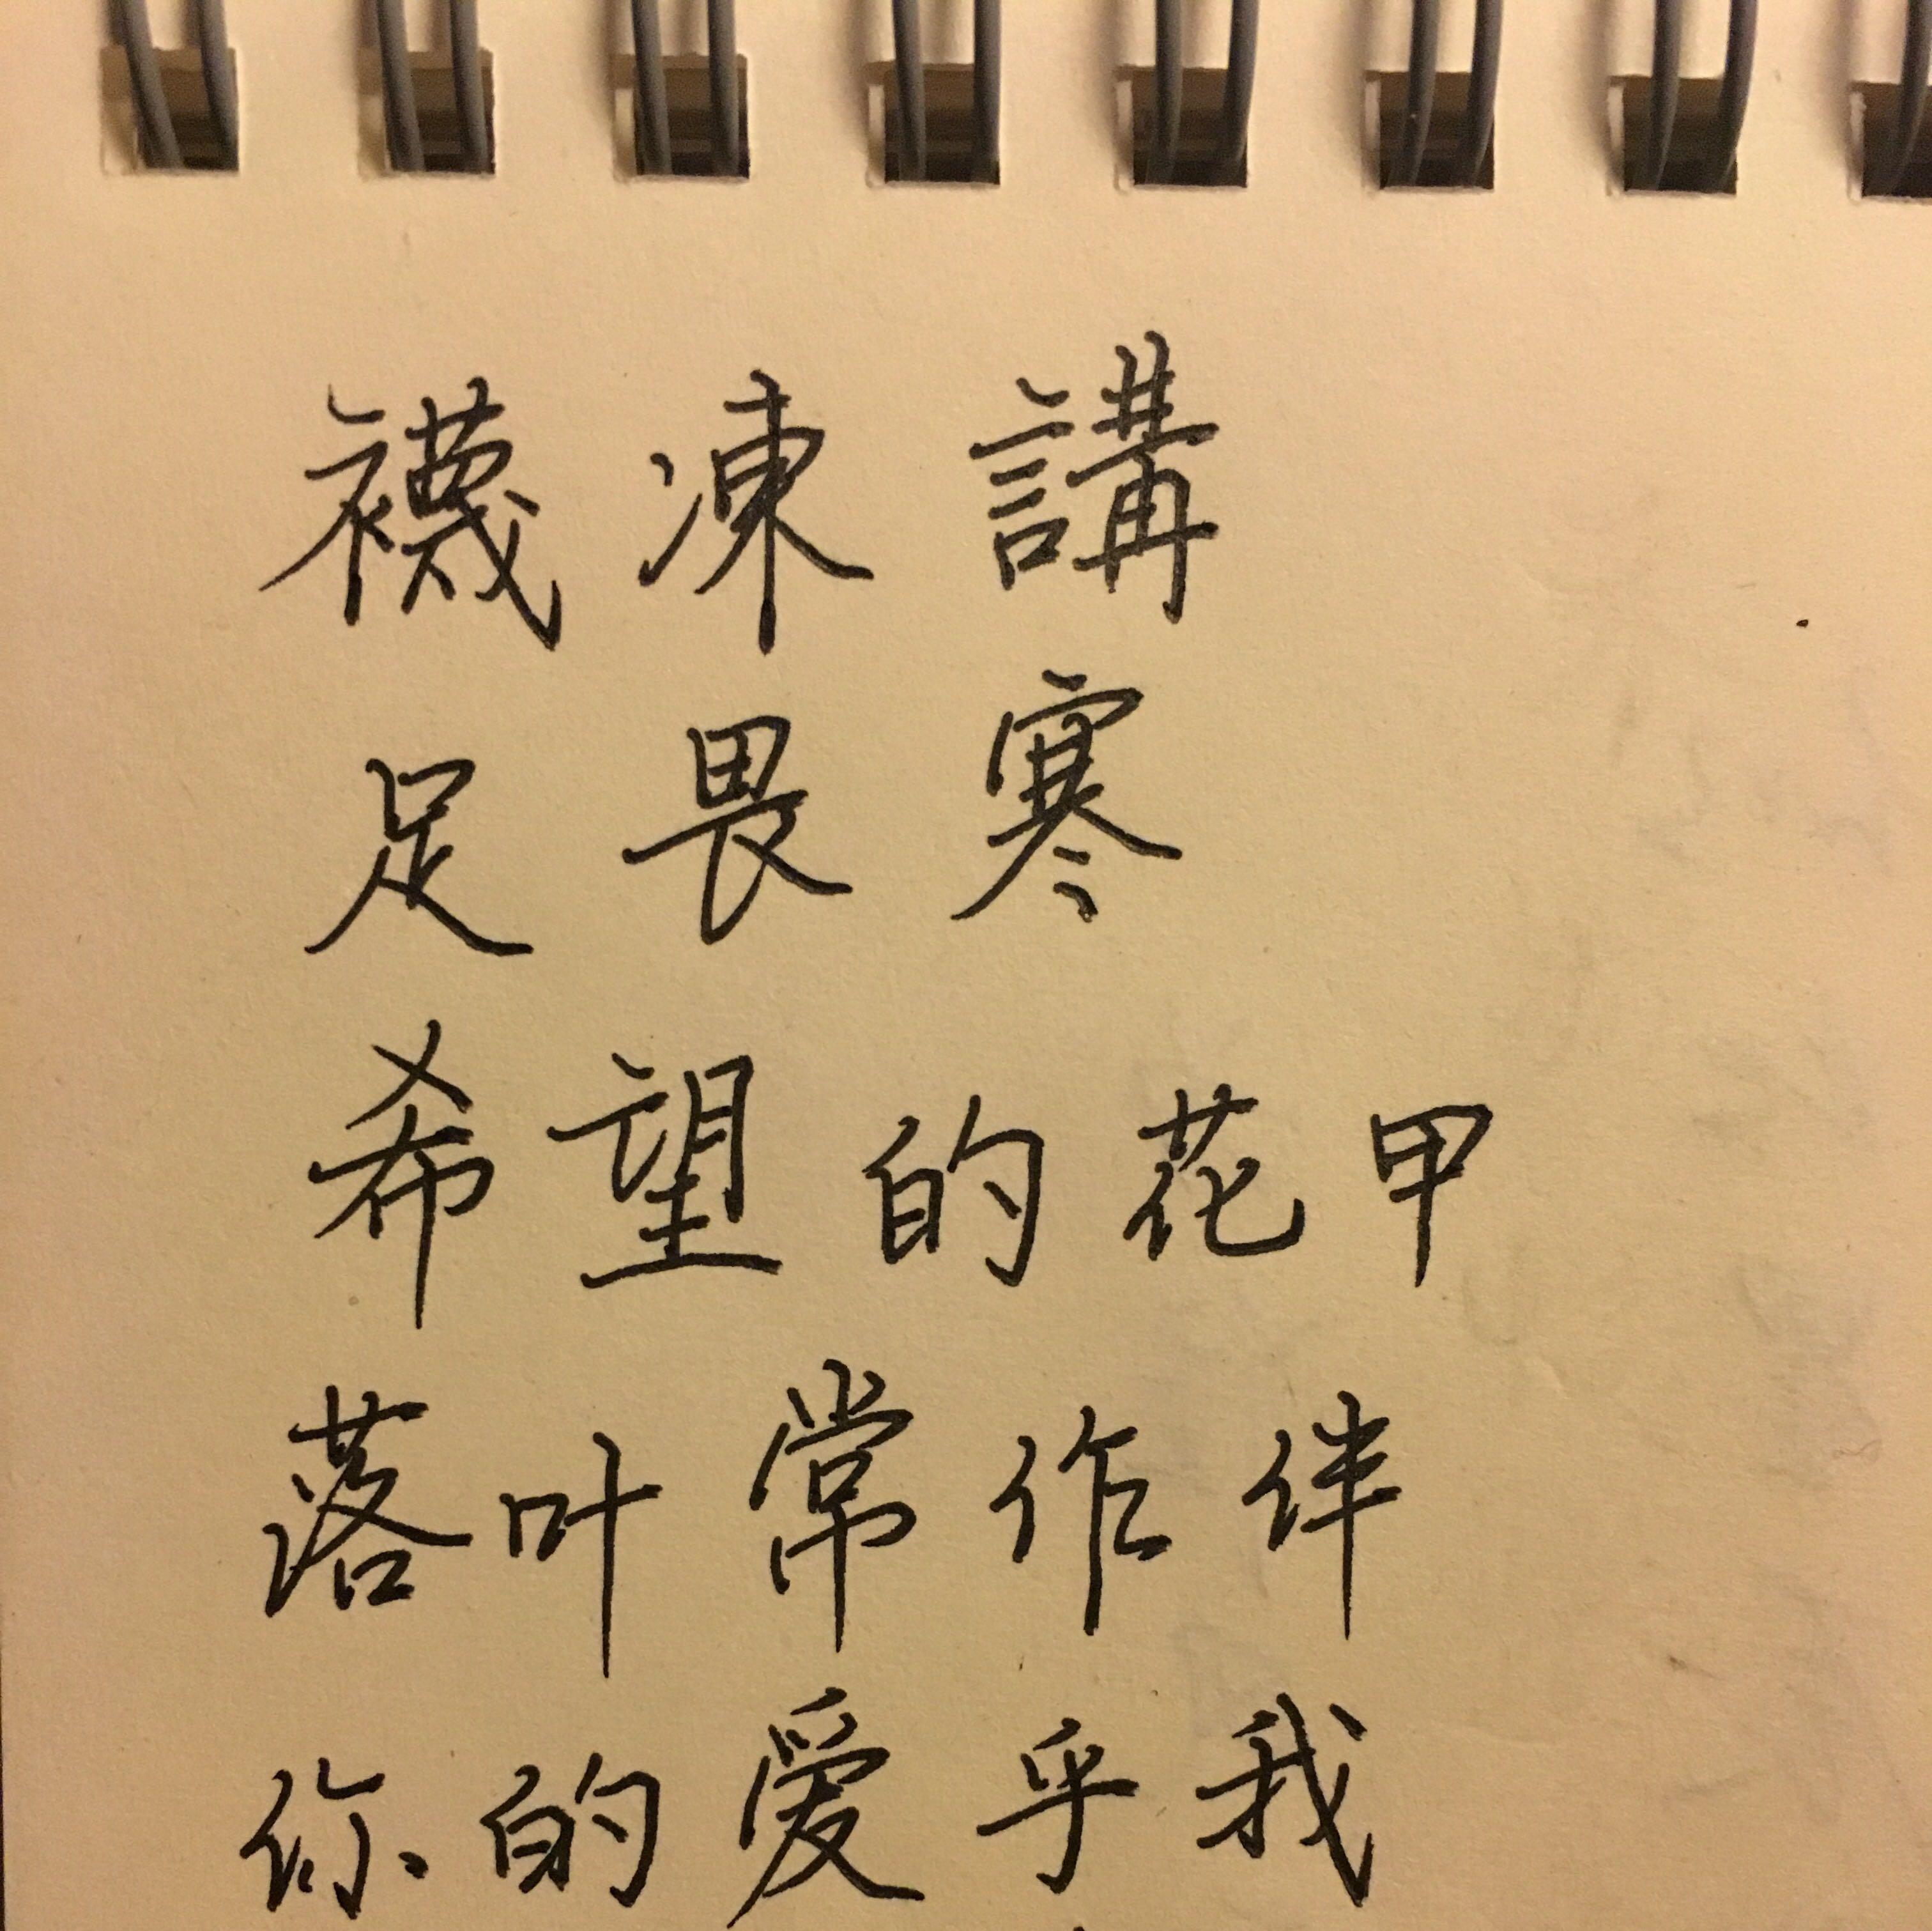 襪凍講
足畏寒
希望的花甲
落叶常作伴
你的爱乎我